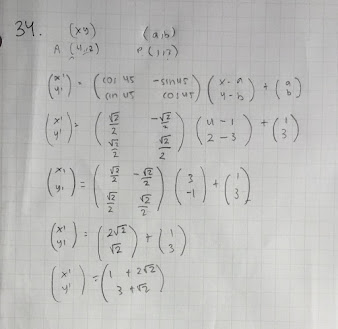 34. (xy) (a,b)
A (4,2) P (1,3)
(x' y') = (cos 45 -sin 45 sin 45 cos 45) (x-a y-b) + (a b)
(x' y') = (√2/2 -√2/2 √2/2 √2/2) (4-1 2-3) + (1 3)
(x' y') = (√2/2 -√2/2 √2/2 √2/2) (3 -1) + (1 3)
(x' y') = (2√2 √2) + (1 3)
(x' y') = (1 + 2√2 3 + √2)